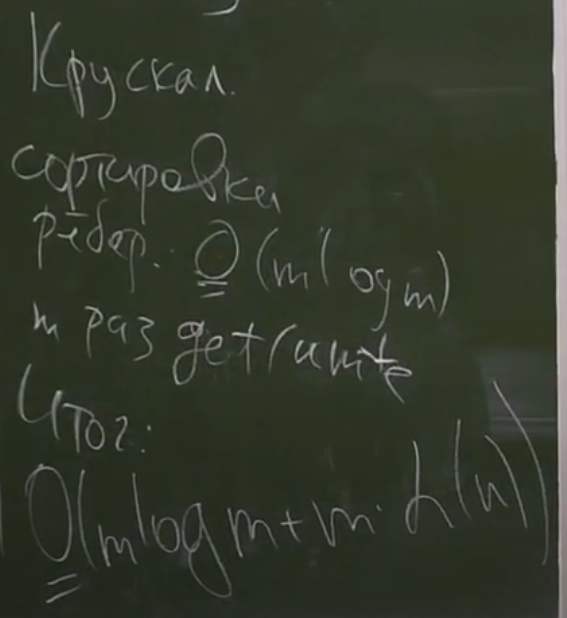 Крускал.
сортировка
рёбер: O(m log m)
m раз get/unite
Итог:
O(m log m + m · α(n))